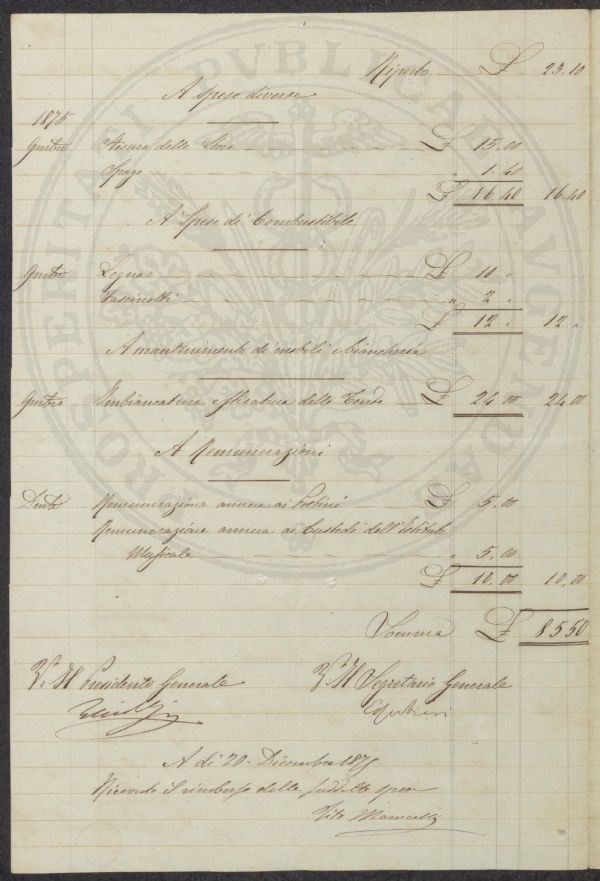 Riporto £ 23.10
A Spese diverse
1875
Stesura delle Stoie £ 15.00
Spago " 1.40
£ 16.40 16.40
A Spese di Combustibile
Legna £ 10 "
Fascinotti " 2 "
£ 12 " 12 "
A mantenimento di mobili e biancheria
Imbiancatura e stiratura delle Tende £ 24.00 24.00
A Remunerazioni
Remunerazione annua ai Postini £ 5.00
Remunerazione annua ai Custodi dell'Istituto
Musicale " 5.00
£ 10.00 10.00
Somma £ 85.50
Vo Il Presidente Generale
Vo Il Segretario Generale
A dì 20 Dicembre 1875
Ricevuto il rimborso delle suddette spese
Vito
PROSPERITATI PVBLICAE AVGENDAE